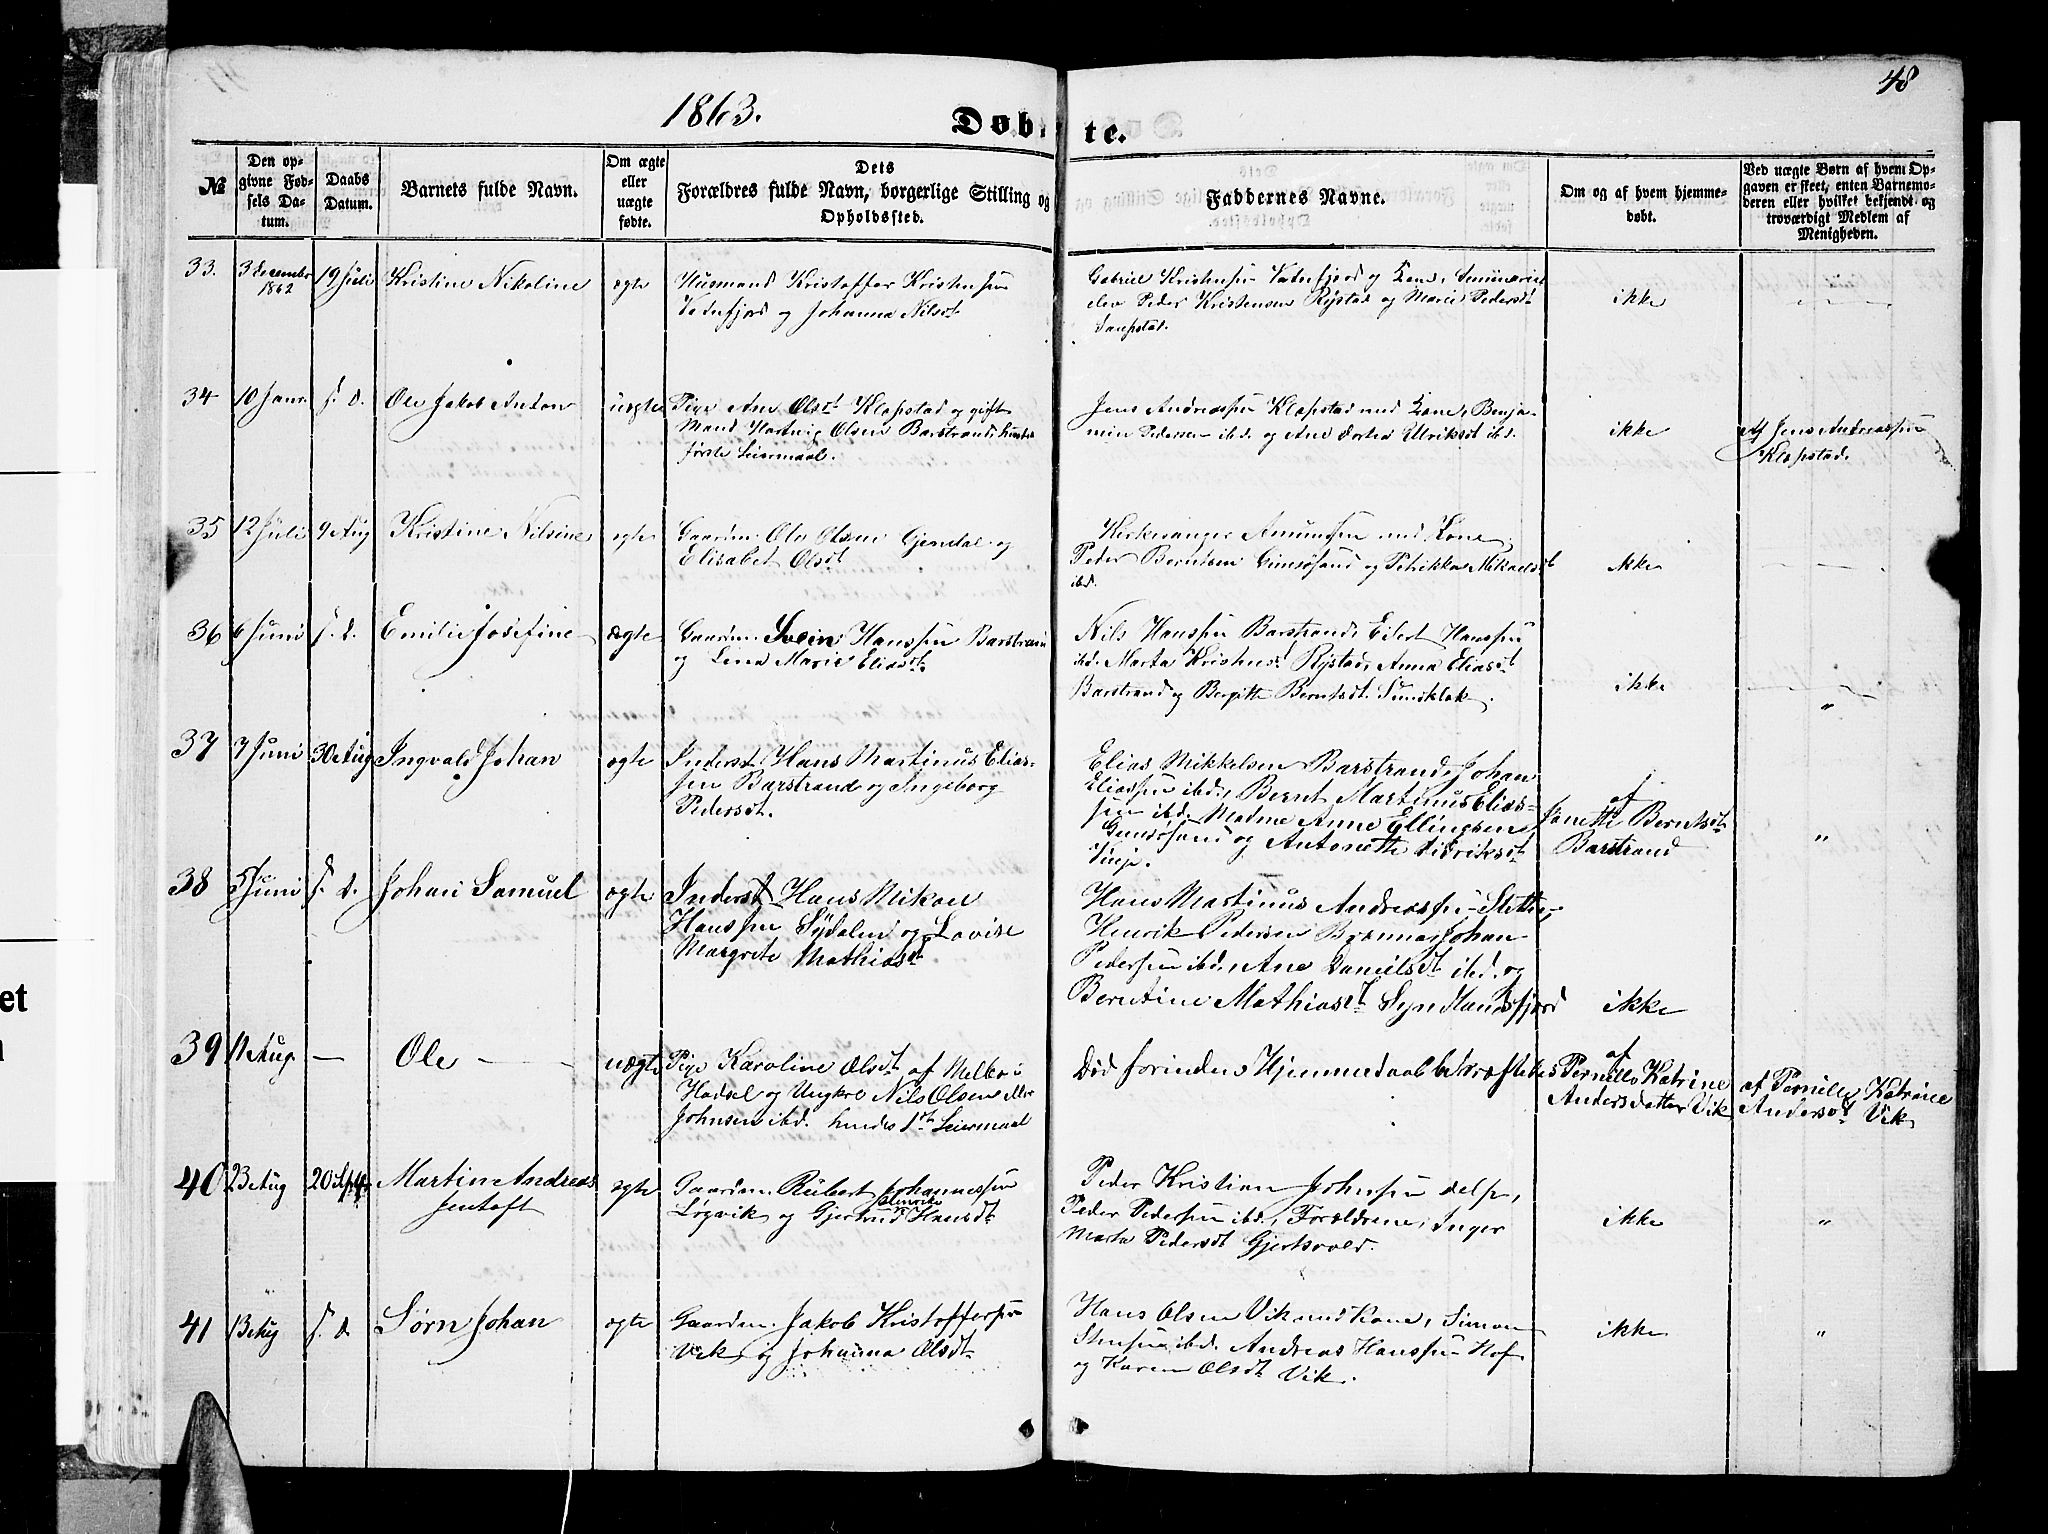 48
1863.
Døbte.
№
Den opgivne Fødsels Datum.
Daabs Datum.
Barnets fulde Navn.
Om ægte eller uægte fødte.
Dets Forældres fulde Navn, borgerlige Stilling og Opholdssted.
Faddernes Navne.
Om og af hvem hjemmedøbt.
Ved uægte Børn af hvem Opgaven er skeet, enten Barnemoderen eller hvilket bekjendt og troværdigt Medlem af Menigheden.
33. 3 December 1862 19 Juli Kristine Nikoline ægte
Husmand Kristoffer Kristensen
Vatnfjord og Johanna Nilsdt
Gabriel Kristensen Vatnfjord og Kone, Seminarie
elev Peder Kristensen Rystad og Marie Pedersdt
Saupstad.
ikke
34 10 Janr. s. d. Ole Jakob Anton uægte
Pige Ane Olsdt Klopstad og gift
Mand Hartvig Olsen Barstrand, hendes
første Leiermaal.
Jens Andreassen Klopstad med Kone, Benja-
min Pedersen ibd. og Ane Dortea Ulriksdt ibd.
ikke
Af Jens Andreassen
Klopstad.
35 12 Juli 9 Aug Kristine Nilsine ægte
Gaardm. Ole Olsen Gjerdal og
Elisabet Olsdt
Kirkesanger Amundsen med Kone,
Peder Berntsen Gimsøsand og Petrikka Mikaelsdt
ibd.
ikke
36 6 Juni s. d. Emilie Josefine ægte
Gaardm. Svein Hanssen Barstrand
og Lena Marie Eliasdt.
Nils Hanssen Barstrand, Eilert Hanssen
ibd. Marta Kristensdt Rystad, Anna Eliasdt
Barstrand og Bergitte Berntsdt. Sundklak.
ikke
"
37 7 Juni 30 Aug Ingvald Johan ægte
Inderst Hans Martinus Elias-
sen Barstrand og Ingeborg
Pedersdt.
Elias Mikkelsen Barstrand, Johan
Eliassen ibd., Bernt Martinus Elias-
sen ibd. Madme Anne Ellingsen
Gimsøsand og Antonette Didriksdt
Vinje.
af
Janette Berntsdt
Barstrand
"
38 5 Juni s. d. Johan Samuel ægte
Inderst Hans Mikael
Hanssen Sydalen og Lovise
Margrete Mathiasdt
Hans Martinus Andreassen Slette,
Henrik Pedersen Brenna, Johan
Pedersen ibd., Ane Danielsdt ibd. og
Berntine Mathiasdt Syndlandsfjord
ikke
39 11 Aug. — Ole — uægte
Pige Karoline Olsdt af Melbo i
Hadsel og Ungkrl Nils Olsen eller
Johnsen ibd. hendes 1ste Leiermaal
Død forinden Hjemmedaab bekræftedes
af
Pernille Katrine
Andersdatter Vik
af Pernille Katrine
Andersdt Vik
40 23 Aug 20 Sept. Martin Andreas
Jentoft
ægte
Gaardm. Rubert Johannessen
Lögvik og Gjertrud Henrikke Hansdt
Peder Kristian Johnsen dels.,
Peder Pedersen ibd., Forældrene, Inger
Marta Pedersdt Gjertsvold.
ikke
"
41 13 Aug s. d. Sørn Johan ægte
Gaardm. Jakob Kristoffersen
Vik og Johanna Olsdt
Hans Olsen Vik med Kone, Simon
Stensen ibd. Andreas Hanssen Hof
og Karen Olsdt Vik.
ikke
"
et